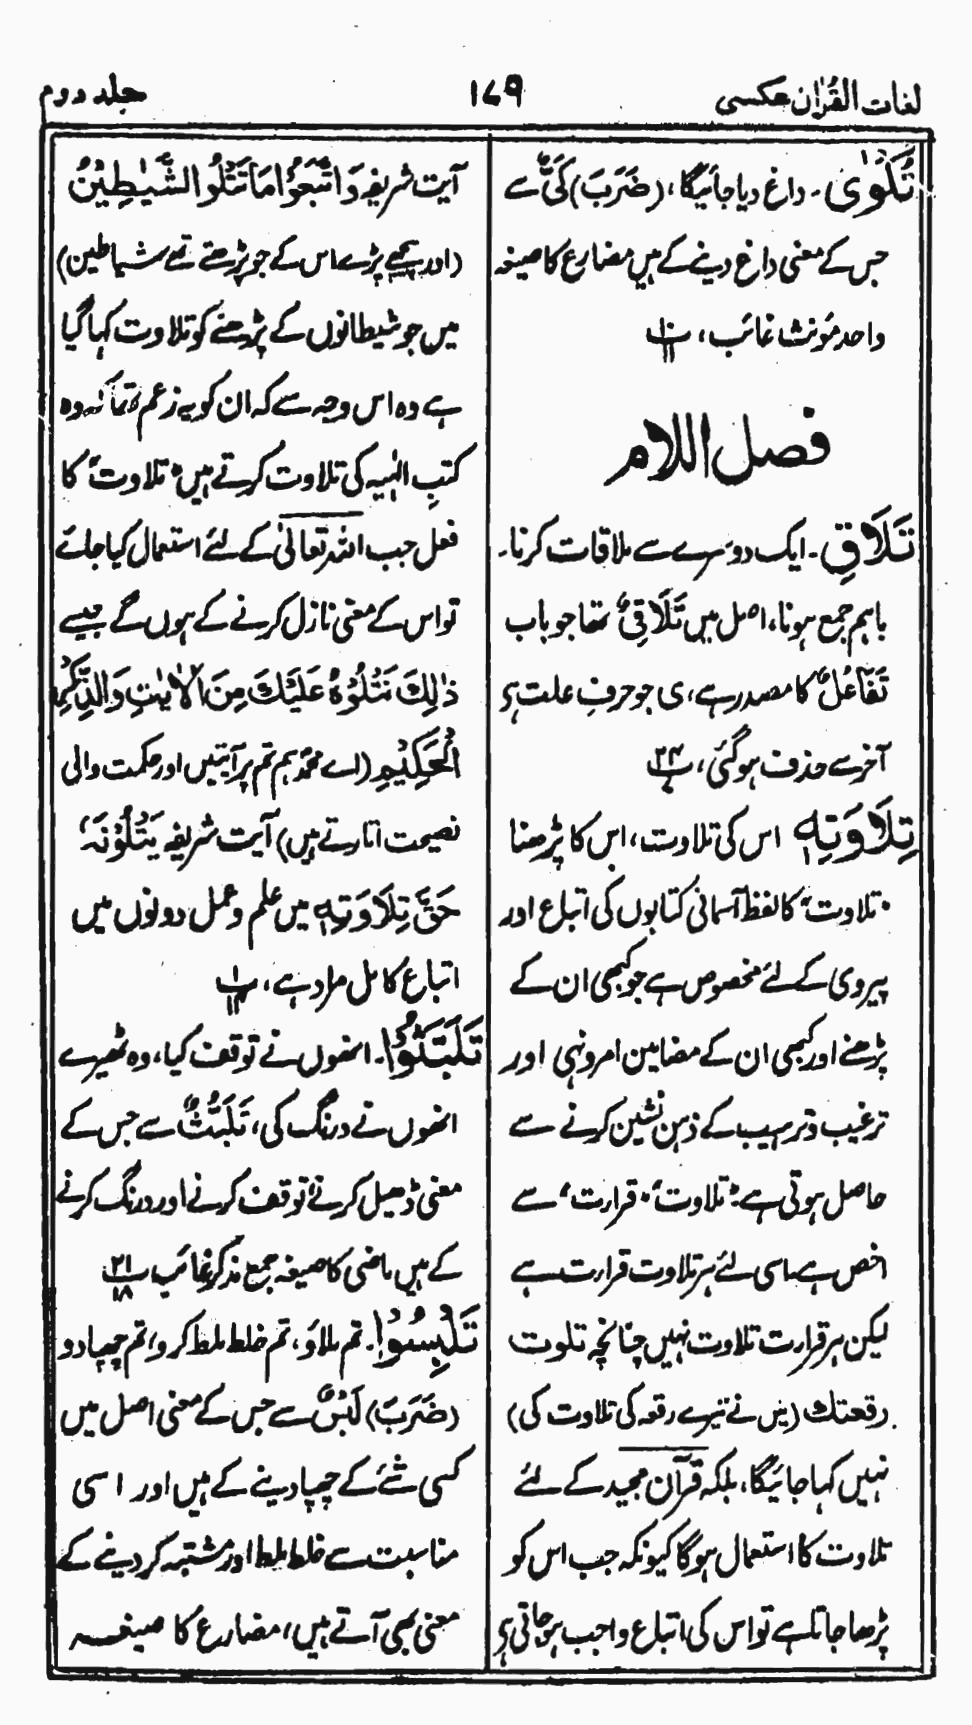 لغات القرآن عکسی
۱۷۹
جلد دوم
تُکْوٰی ۔ داغ دیا جائیگا، (ضَرَبَ) کَیٌّ سے
جس کے معنی داغ دینے کے ہیں مضارع کا صیغہ
واحد مؤنث غائب،
فصل اللام
تَلَاقِ ۔ ایک دوسرے سے ملاقات کرنا۔
باہم جمع ہونا، اصل میں تَلَاقِیٌ تھا جو باب
تَفَاعُلٌ کا مصدر ہے، ی جو حرفِ علت ہے
آخر سے حذف ہوگئی، پ ۲۴
تِلَاوَتِهٖ اس کی تلاوت، اس کا پڑھنا
"تلاوت" کا لفظ آسمانی کتابوں کی اتباع اور
پیروی کے لئے مخصوص ہے جو کبھی ان کے
پڑھنے اور کبھی ان کے مضامین امر و نہی اور
ترغیب و ترہیب کے ذہن نشین کرنے سے
حاصل ہوتی ہے "تلاوت" "قرارت" سے
اخص ہے اسی لئے ہر تلاوت قرارت ہے
لیکن ہر قرارت تلاوت نہیں چنانچہ تلوت
رقعتك (میں نے تیرے رقعہ کی تلاوت کی)
نہیں کہا جائیگا، بلکہ قرآن مجید کے لئے
تلاوت کا استعمال ہوگا کیونکہ جب اس کو
پڑھا جاتا ہے تو اس کی اتباع واجب ہوجاتی ہے
آیت شریفہ وَاتَّبَعُوْا مَا تَتْلُوا الشَّیٰطِیْنُ
(اور پیچھے پڑے اس کے جو پڑھتے تھے شیاطین)
میں جو شیطانوں کے پڑھنے کو تلاوت کہا گیا
ہے وہ اس وجہ سے کہ ان کو یہ زعم تھا کہ وہ
کتبِ الٰہیہ کی تلاوت کرتے ہیں "تلاوت" کا
فعل جب اللہ تعالیٰ کے لئے استعمال کیا جائے
تو اس کے معنی نازل کرنے کے ہوں گے جیسے
ذٰلِكَ نَتْلُوْهُ عَلَیْكَ مِنَ الْاٰیٰتِ وَالذِّكْرِ
الْحَكِیْمِ (اے محمد ہم تم پر آیتیں اور حکمت والی
نصیحت اتارتے ہیں) آیت شریفہ یَتْلُوْنَهٗ
حَقَّ تِلَاوَتِهٖ میں علم و عمل دونوں میں
اتباع کامل مراد ہے، پ
تَلَبَّثُوْا ۔ انھوں نے توقف کیا، وہ ٹھیرے
انھوں نے درنگ کی، تَلَبُّثٌ سے جس کے
معنی ڈھیل کرنے، توقف کرنے اور درنگ کرنے
کے ہیں ماضی کا صیغہ جمع مذکر غائب، پ ۲۱ ۱۸
تَلْبِسُوْا ۔ تم ملاؤ، تم خلط ملط کرو، تم چھپا دو
(ضَرَبَ) لَبْسٌ سے جس کے معنی اصل میں
کسی شے کے چھپا دینے کے ہیں اور اسی
مناسبت سے خلط ملط اور مشتبہ کر دینے کے
معنی بھی آتے ہیں، مضارع کا صیغہ